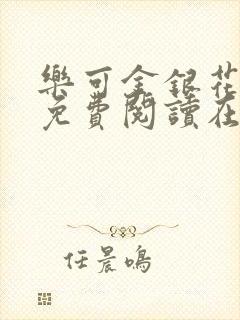 樂可金銀花
免費閱讀在
任晨鳴